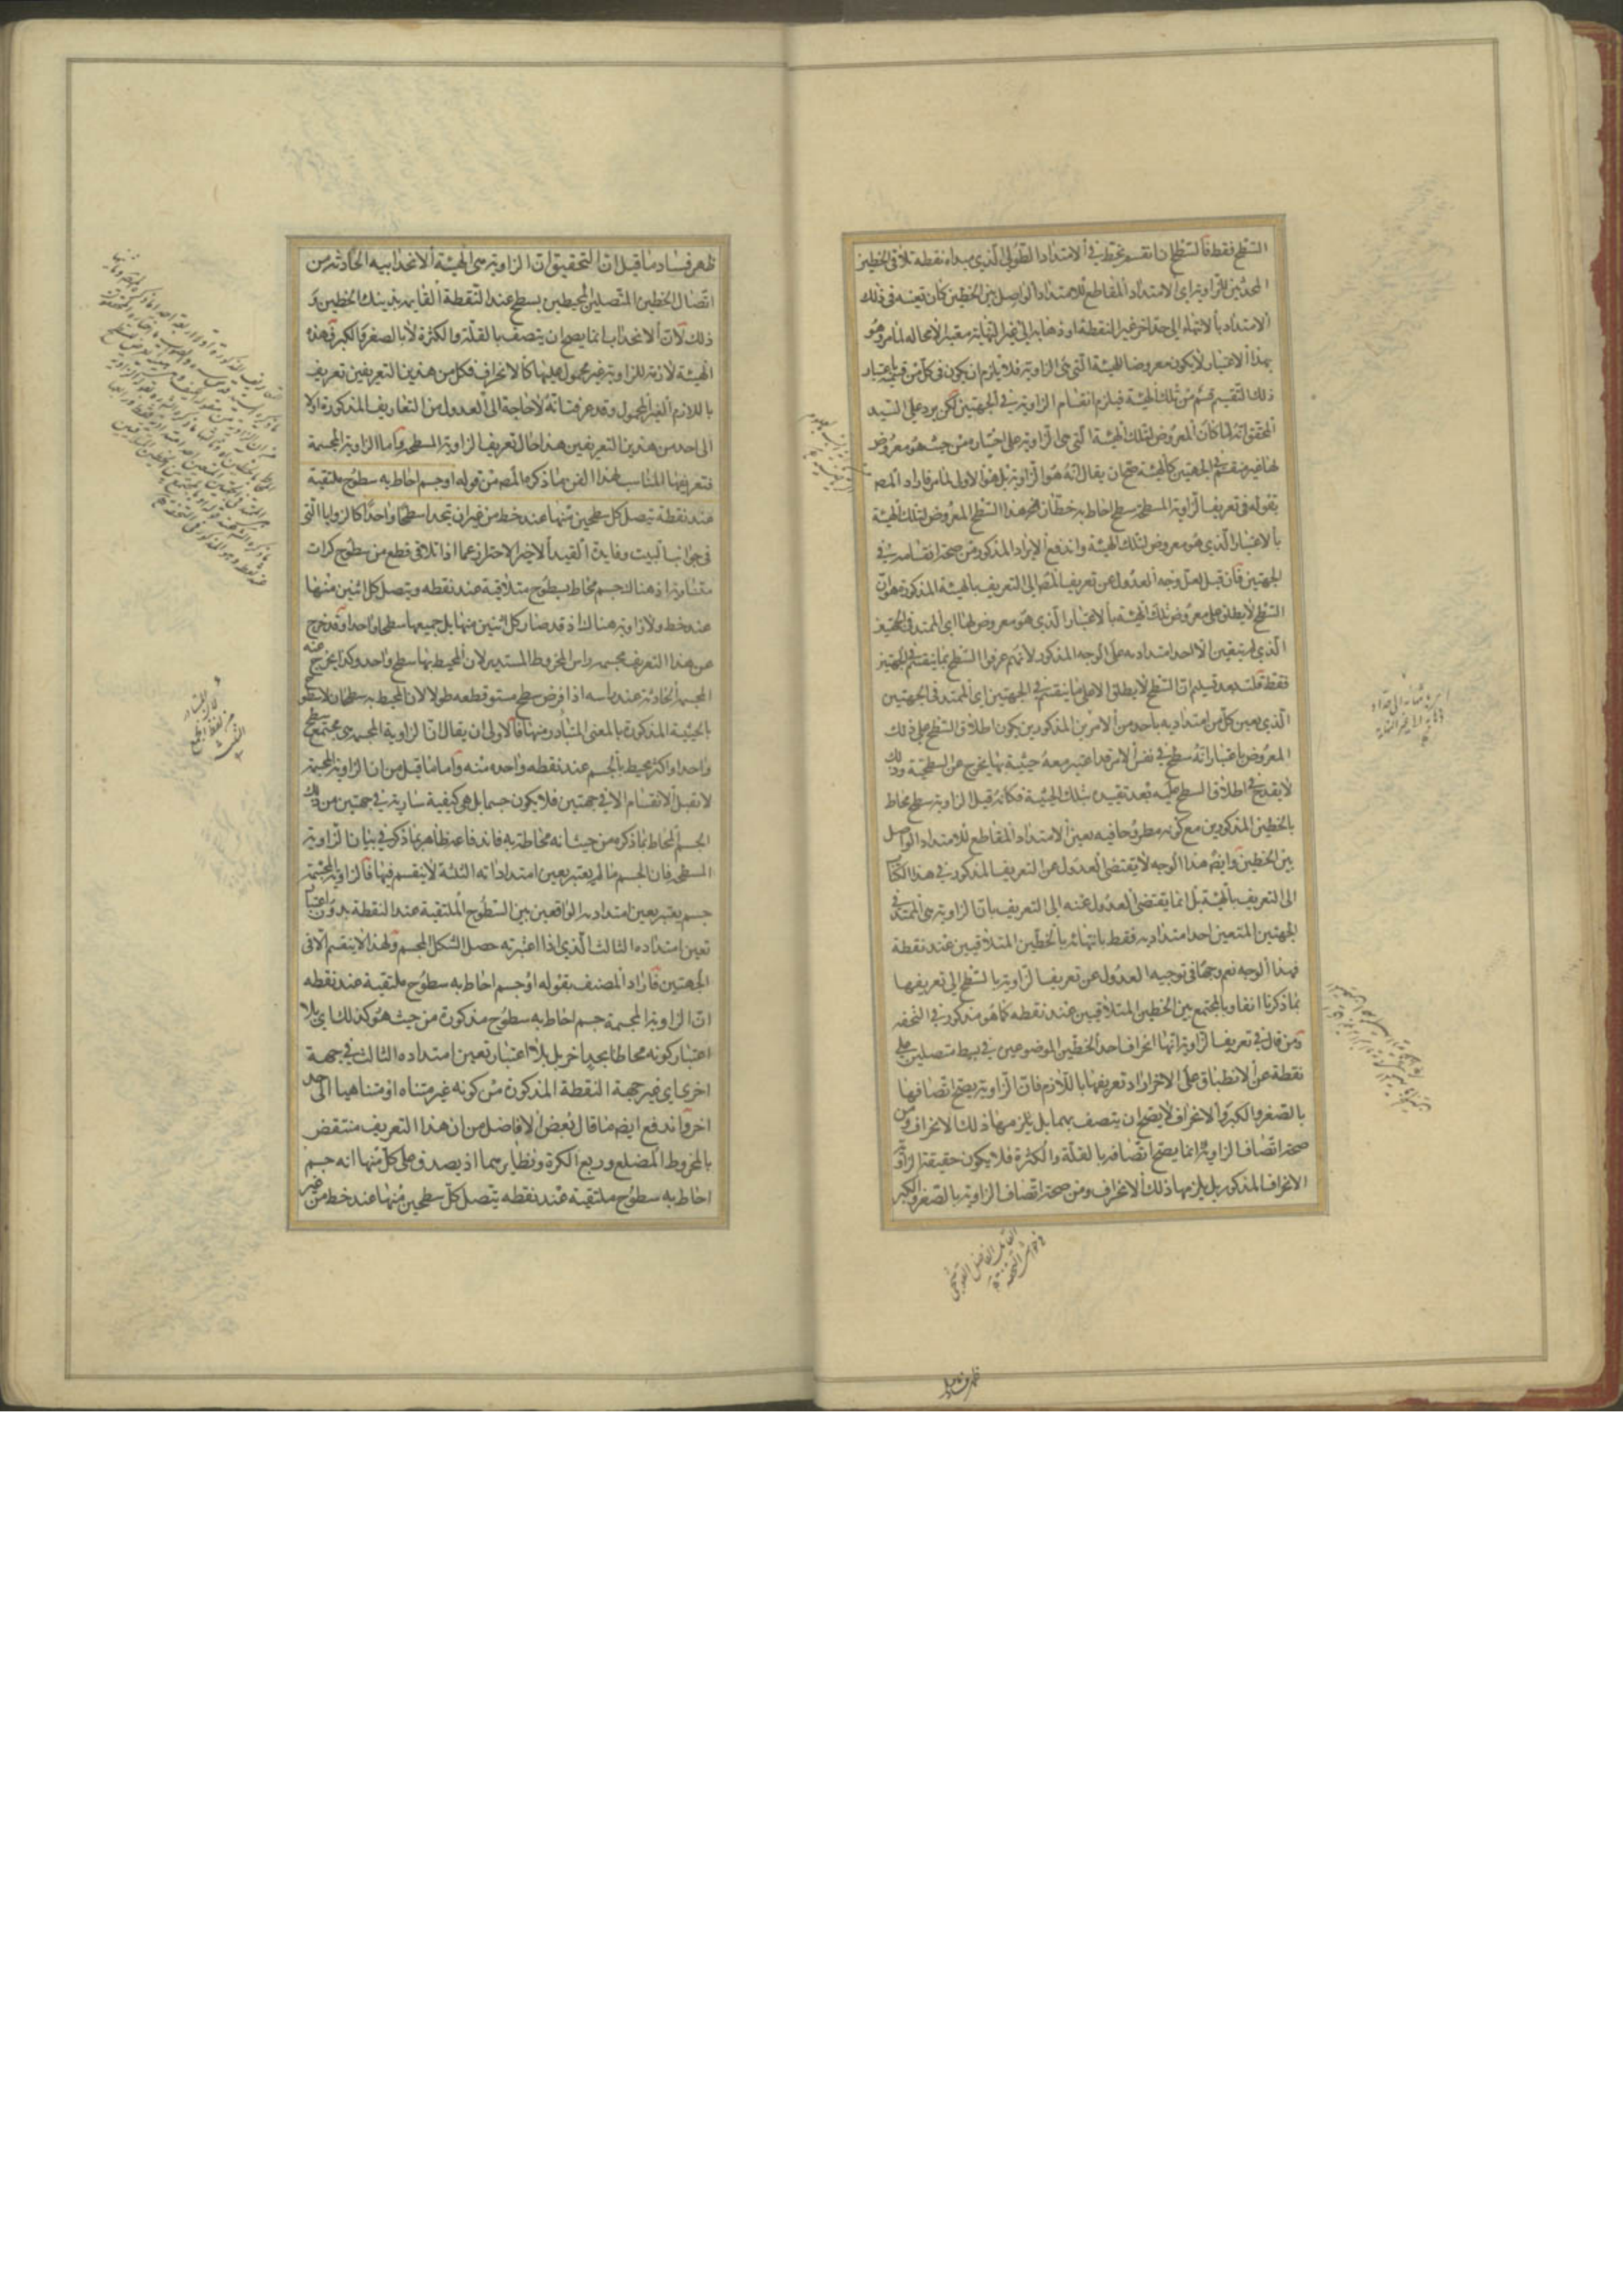 السطح فقط فالسطح اذا انقسم بخط في الامتداد الطولي الذي مبداه نقطة تلاقي الخطين
المحدثين للزاوية اي الامتداد المقاطع للامتداد الواصل بين الخطين كان تعينه في ذلك
الامتداد بالانتهاء الى حد اخر غير النقطة او ذهابه الى غير النهاية معتبرا لا محالة لما مر وهو
بهذا الاعتبار لا يكون معروضا للهيئة التي هي الزاوية فلا يلزم ان يكون في كل من قسميه باعتبار
ذلك التقسيم قسم من تلك الهيئة فيلزم انقسام الزاوية في الجهتين لكن يرد على السيد
المحقق انه لما كان المعروض لتلك الهيئة التي هي الزاوية على اختياره من حيث هو معروض
لها غير منقسم في الجهتين كالهيئة صح ان يقال انه هو الزاوية بل هو الاولى لما مر فاراد المصـ
بقوله في تعريف الزاوية المسطحة سطح احاط به خطان هذا السطح المعروض لتلك الهيئة
بالاعتبار الذي هو معروض لتلك الهيئة واندفع الايراد المذكور من صحة انقسامه في
الجهتين فان قيل لعل وجه العدول عن تعريف المصـ الى التعريف بالهيئة المذكورة هو ان
السطح لا يطلق على معروض تلك الهيئة بالاعتبار الذي هو معروض لها اي الممتد في الجهتين
الذي لم يتعين الا احد امتداديه على الوجه المذكور لانهم عرفوا السطح بما ينقسم في الجهتين
فقط قلت بعد تسليم ان السطح لا يطلق الا على ما ينقسم في الجهتين اي الممتد في الجهتين
الذي تعين كل من امتداديه باحد من الامرين المذكورين يكون اطلاق السطح على ذلك
المعروض باعتبار انه سطح في نفس الامر قد اعتبر معه حيثية بها يخرج عن السطحية وذلك
لا يقدح في اطلاق السطح عليه بعد تقييده بتلك الحيثية فكانه قيل الزاوية سطح محاط
بالخطين المذكورين مع كونه مطروحا فيه تعين الامتداد المقاطع للامتداد الواصل
بين الخطين وايضا هذا الوجه لا يقتضي العدول عن التعريف المذكور في هذا الكتاب
الى التعريف بالهيئة بل انما يقتضي العدول عنه الى التعريف بان الزاوية هي الممتد في
الجهتين المتعين احد امتداديه فقط بانتهائه بالخطين المتلاقيين عند نقطة
فهذا الوجه نعم وجها في توجيه العدول عن تعريف الزاوية بالسطح الى تعريفها
بما ذكرنا انفا وبالمجتمع بين الخطين المتلاقيين عند نقطة كما هو مذكور في التحفه
ومن قال في تعريف الزاوية انها انحراف احد الخطين الموضوعين في بسيط متصلين على
نقطة عن الانطباق على الاخر اراد تعريفها باللازم فان الزاوية يصح اتصافها
بالصغر والكبر والانحراف لا يصح ان يتصف بهما بل يلزمها ذلك الانحراف ومن
صحة اتصاف الزاوية انما يصح اتصافه بالقلة والكثرة فلا يكون حقيقة الزاوية
الانحراف المذكور بل يلزمها ذلك الانحراف ومن صحة اتصاف الزاوية بالصغر والكبر
القائل الفاضل القوشجي
في حواشي التحفه
ظهر فساد ما قيل
ظهر فساد ما قيل ان التحقيق ان الزاوية هي الهيئة الانحدابية الحادثة من
اتصال الخطين المتصلين المحيطين بسطح عند النقطة القايمة بذينك الخطين و
ذلك لان الانحداب انما يصح ان يتصف بالقلة والكثرة لا بالصغر والكبر فهذه
الهيئة لازمة للزاوية غير محمول عليها كالانحراف فكل من هذين التعريفين تعريف
باللازم الغير المحمول وقد عرفت انه لا حاجة الى العدول من التعاريف المذكورة اولا
الى احد من هذين التعريفين هذا حال تعريف الزاوية المسطحة واما الزاوية المجسمة
فتعريفها المناسب لهذا الفن ما ذكره المصـ من قوله او جسم احاط به سطوح ملتقية
عند نقطة يتصل كل سطحين منها عند خط من غير ان يتحدا سطحا واحدا كالزوايا التي
في جوانب البيت وفايدة القيد الاخير الاحتراز عما اذا تلاقى قطع من سطوح كرات
متساوية اذ هناك جسم محاط بسطوح متلاقية عند نقطة ويتصل كل اثنين منها
عند خط ولا زاوية هناك اذ قد صار كل اثنين منها بل جميعها سطحا واحدا وقد خرج
عن هذا التعريف مجسمة راس المخروط المستدير لان المحيط بها سطح واحد وكذا يخرج عنه
المجسمة الحادثة عند راسه اذا فرض سطح مستو قطعه طولا لان المحيط به سطحان لا سطوح
بالحيثية المذكورة بالمعنى المتبادر منها فالاولى ان يقال ان الزاوية المجسمة هي مجتمع سطح
واحد او اكثر محيط بالجسم عند نقطة واحدة منه واما ما قيل من ان الزاوية المجسمة
لا تقبل الانقسام الا في جهتين فلا يكون جسما بل هي كيفية سارية في جهتين من ذلك
الجسم المحاط بما ذكره من حيث انه محاط به فاندفاعه ظاهر بما ذكر في بيان الزاوية
المسطحة فان الجسم ما لم يعتبر تعين امتداداته الثلثة لا ينقسم فيها فالزاوية المجسمة
جسم يعتبر تعين امتداديه الواقعين بين السطوح الملتقية عند النقطة بدون اعتبار
تعين امتداده الثالث الذي اذا اعتبر به حصل الشكل المجسم ولهذا لا ينقسم الا في
الجهتين فاراد المصنف بقوله او جسم احاط به سطوح ملتقية عند نقطة
ان الزاوية المجسمة جسم احاط به سطوح مذكورة من حيث هو كذلك اي بلا
اعتبار كونه محاطا بحد اخر بل بلا اعتبار تعين امتداده الثالث في جهة
اخرى اي غير جهة النقطة المذكورة من كونه غير متناه او متناهيا الى حد
اخر واندفع ايضا ما قال بعض الافاضل من ان هذا التعريف منتقض
بالمخروط المضلع وربع الكرة ونظايرهما اذ يصدق على كل منها انه جسم
احاط به سطوح ملتقية عند نقطة يتصل كل سطحين منها عند خط من غير